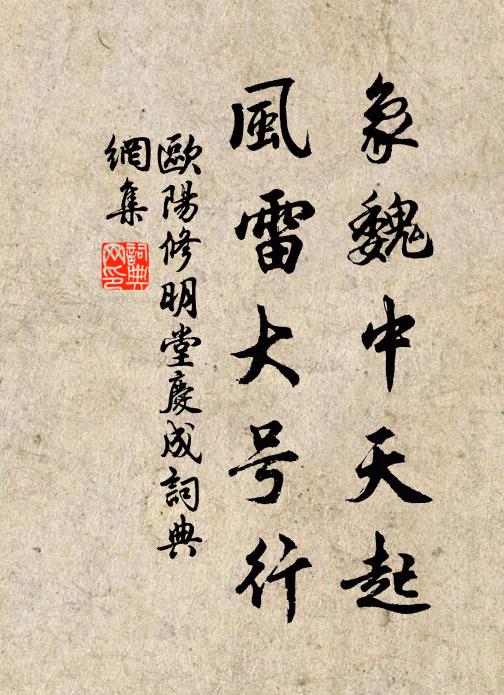 象魏中天起
風雷大号行
歐陽修明堂慶成詞典
網集
詞典
网印